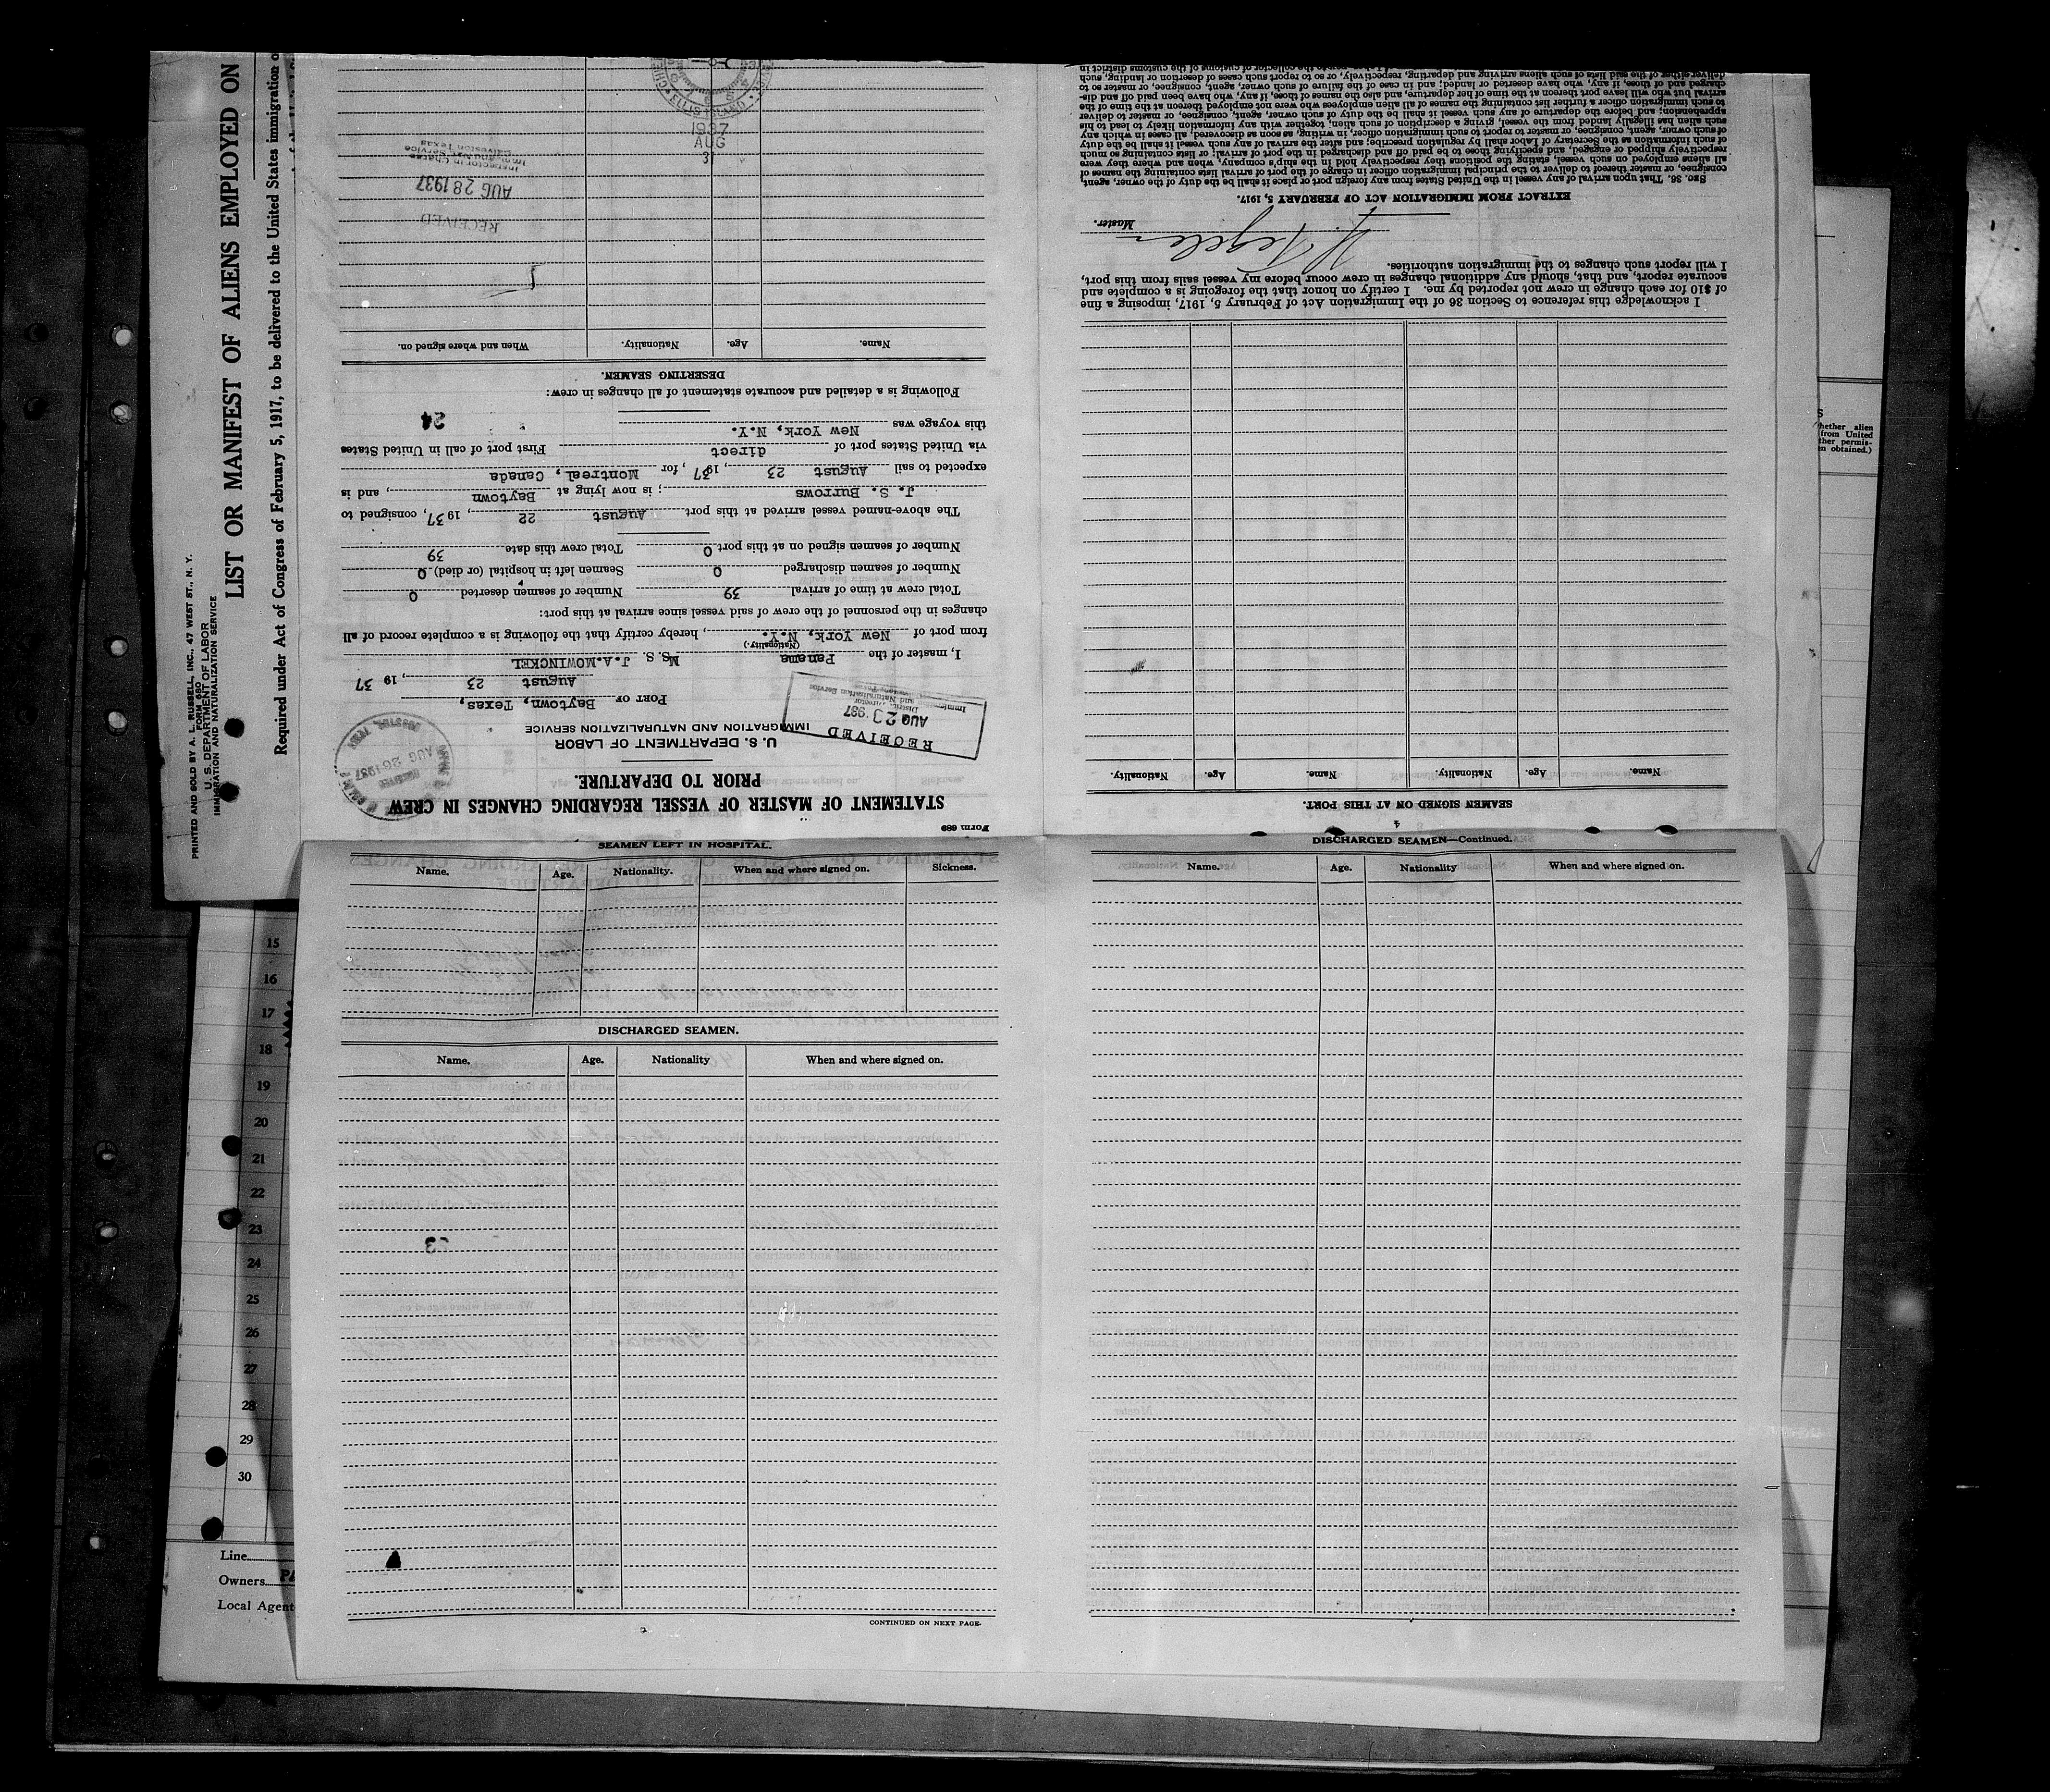 PRINTED AND SOLD BY A. L. RUSSELL, INC., 47 WEST ST., N. Y.
FORM 680
U. S. DEPARTMENT OF LABOR
IMMIGRATION AND NATURALIZATION SERVICE
LIST OR MANIFEST OF ALIENS EMPLOYED ON
Required under Act of Congress of February 5, 1917, to be delivered to the United States immigration o
Form 689
STATEMENT OF MASTER OF VESSEL REGARDING CHANGES IN CREW
PRIOR TO DEPARTURE.
U. S. DEPARTMENT OF LABOR
IMMIGRATION AND NATURALIZATION SERVICE
RECEIVED
AUG 23 1937
AUG 26 1937
PORT OF Baytown, Texas,
August 23, 19 37
I, master of the Panama Ms. S. J.A.MOWINCKEL
(Nationality.)
from port of New York, N.Y., hereby certify that the following is a complete record of all
changes in the personnel of the crew of said vessel since arrival at this port:
Total crew at time of arrival 39 Number of seamen deserted 0
Number of seamen discharged 0 Seamen left in hospital (or died) 0
Number of seamen signed on at this port 0 Total crew this date 39
The above-named vessel arrived at this port August 22, 19 37, consigned to
J. S. Burrows; is now lying at Baytown, and is
expected to sail August 23, 19 37, for Montreal, Canada
via United States port of direct First port of call in United States
this voyage was New York, N.Y.
24
Following is a detailed and accurate statement of all changes in crew:
DESERTING SEAMEN.
Name. Age. Nationality. When and where signed on.
RECEIVED
AUG 28 1937
Inspector in Charge
Galveston Texas
31
AUG
1937
ELLIS ISLAND
4
SEAMEN SIGNED ON AT THIS PORT.
Name. Age. Nationality. Name. Age. Nationality.
I acknowledge this reference to Section 36 of the Immigration Act of February 5, 1917, imposing a fine
of $10 for each change in crew not reported by me. I certify on honor that the foregoing is a complete and
accurate report, and that, should any additional changes in crew occur before my vessel sails from this port,
I will report such changes to the immigration authorities.
Master.
EXTRACT FROM IMMIGRATION ACT OF FEBRUARY 5, 1917.
SEC. 36. That upon arrival of any vessel in the United States from any foreign port or place it shall be the duty of the owner, agent,
consignee, or master thereof to deliver to the principal immigration officer in charge of the port of arrival lists containing the names of
all aliens employed on such vessel, stating the positions they respectively hold in the ship's company, when and where they were
respectively shipped or engaged, and specifying those to be paid off and discharged in the port of arrival; or lists containing so much
of such information as the Secretary of Labor shall by regulation prescribe; and after the arrival of any such vessel it shall be the duty
of such owner, agent, consignee, or master to report to such immigration officer, in writing, as soon as discovered, all cases in which any
such alien has illegally landed from the vessel, giving a description of such alien, together with any information likely to lead to his
apprehension; and before the departure of any such vessel it shall be the duty of such owner, agent, consignee, or master to deliver
to such immigration officer a further list containing the names of all alien employees who were not employed thereon at the time of the
arrival but who will leave port thereon at the time of her departure, and also the names of those, if any, who have been paid off and dis-
charged and of those, if any, who have deserted or landed; and in case of the failure of such owner, agent, consignee, or master so to
deliver either of the said lists of such aliens arriving and departing, respectively, or so to report such cases of desertion or landing, such
SEAMEN LEFT IN HOSPITAL.
Name. Age. Nationality. When and where signed on. Sickness.
DISCHARGED SEAMEN.
Name. Age. Nationality When and where signed on.
CONTINUED ON NEXT PAGE.
DISCHARGED SEAMEN—Continued.
Name. Age. Nationality When and where signed on.
hether alien
from United
ther permis-
n obtained.)
15
16
17
18
19
20
21
22
23
24
25
26
27
28
29
30
Line
Owners PA
Local Agent